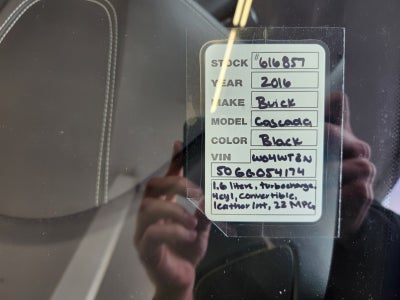 STOCK "616857
YEAR 2016
MAKE Buick
MODEL Cascada
COLOR Black
VIN W04WT3N
50GG054174
1.6 liters, turbocharge,
4cyl, convertible,
leather Int, 23 MPG